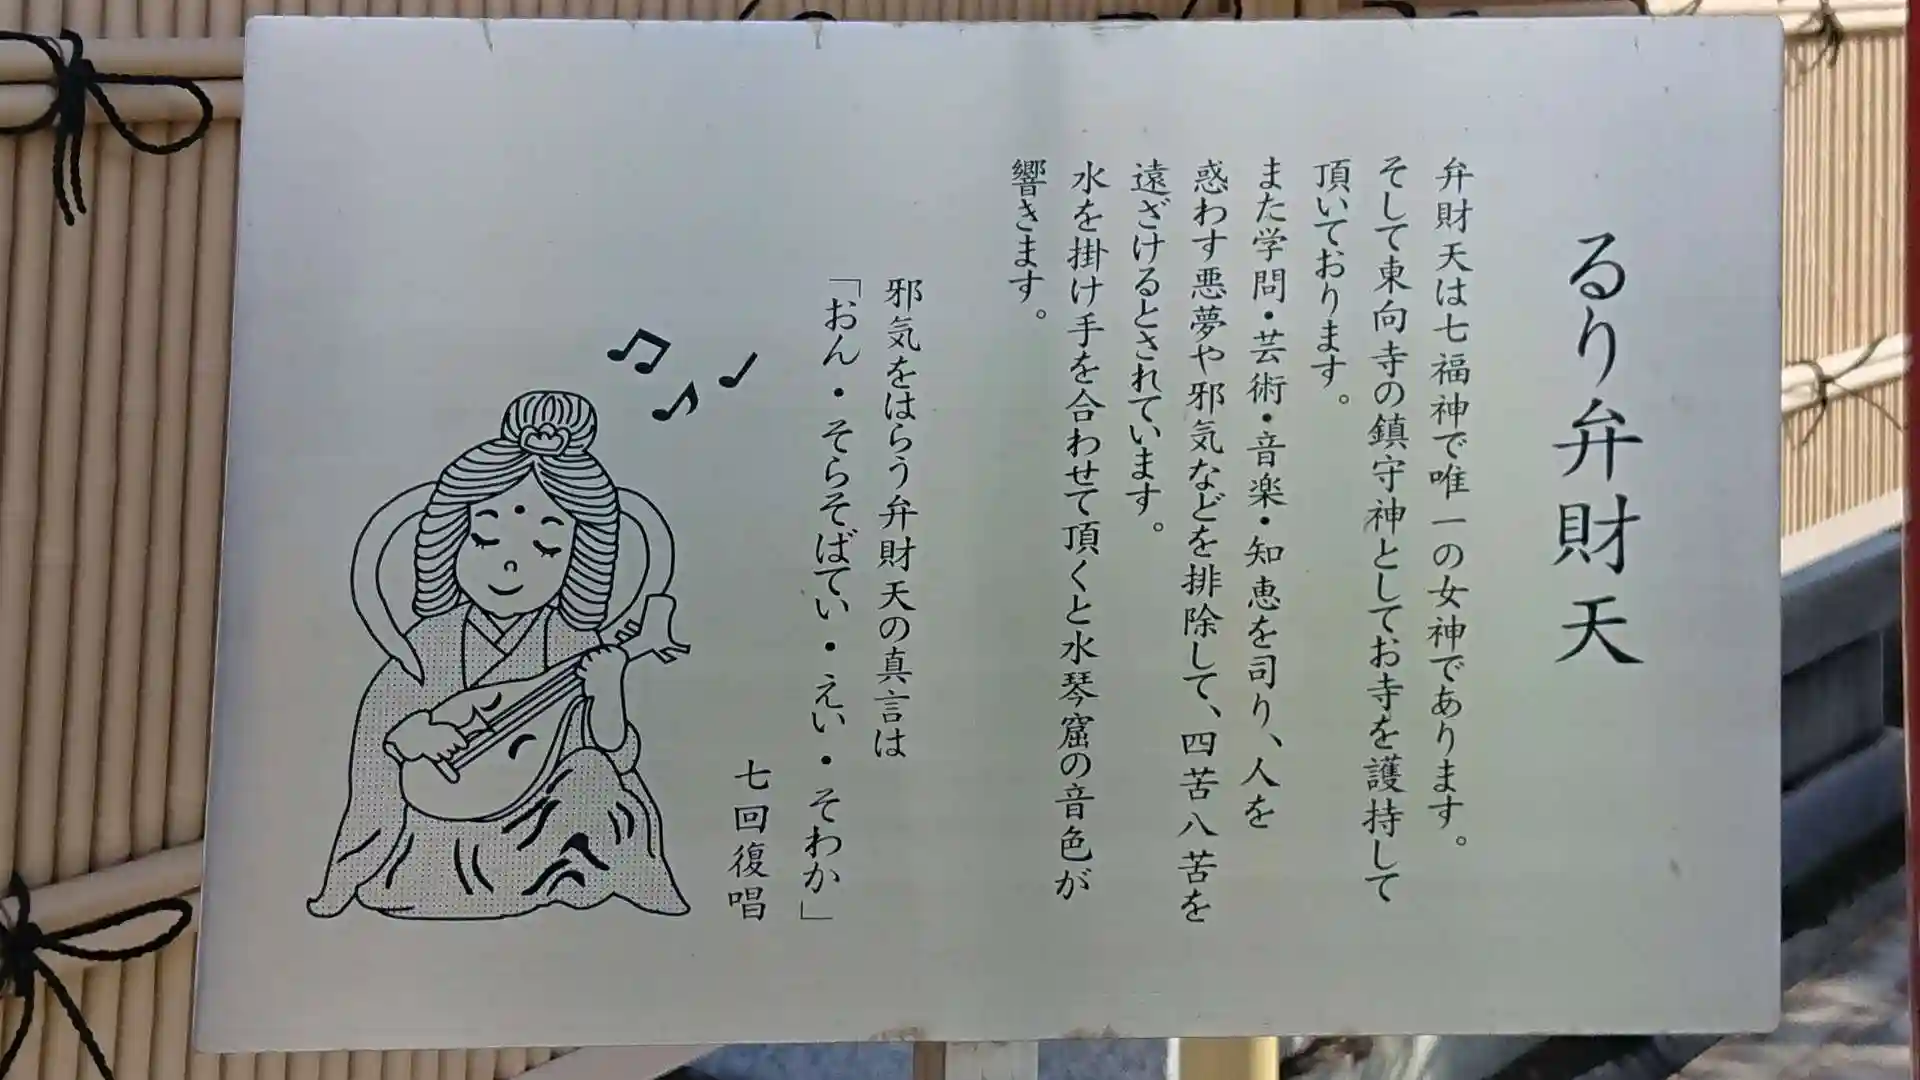 るり弁財天
弁財天は七福神で唯一の女神であります。
そして東向寺の鎮守神としてお寺を護持して
頂いております。
また学問・芸術・音楽・知恵を司り、人を
惑わす悪夢や邪気などを排除して、四苦八苦を
遠ざけるとされています。
水を掛け手を合わせて頂くと水琴窟の音色が
響きます。
邪気をはらう弁財天の真言は
「おん・そらそばてい・えい・そわか」
七回復唱